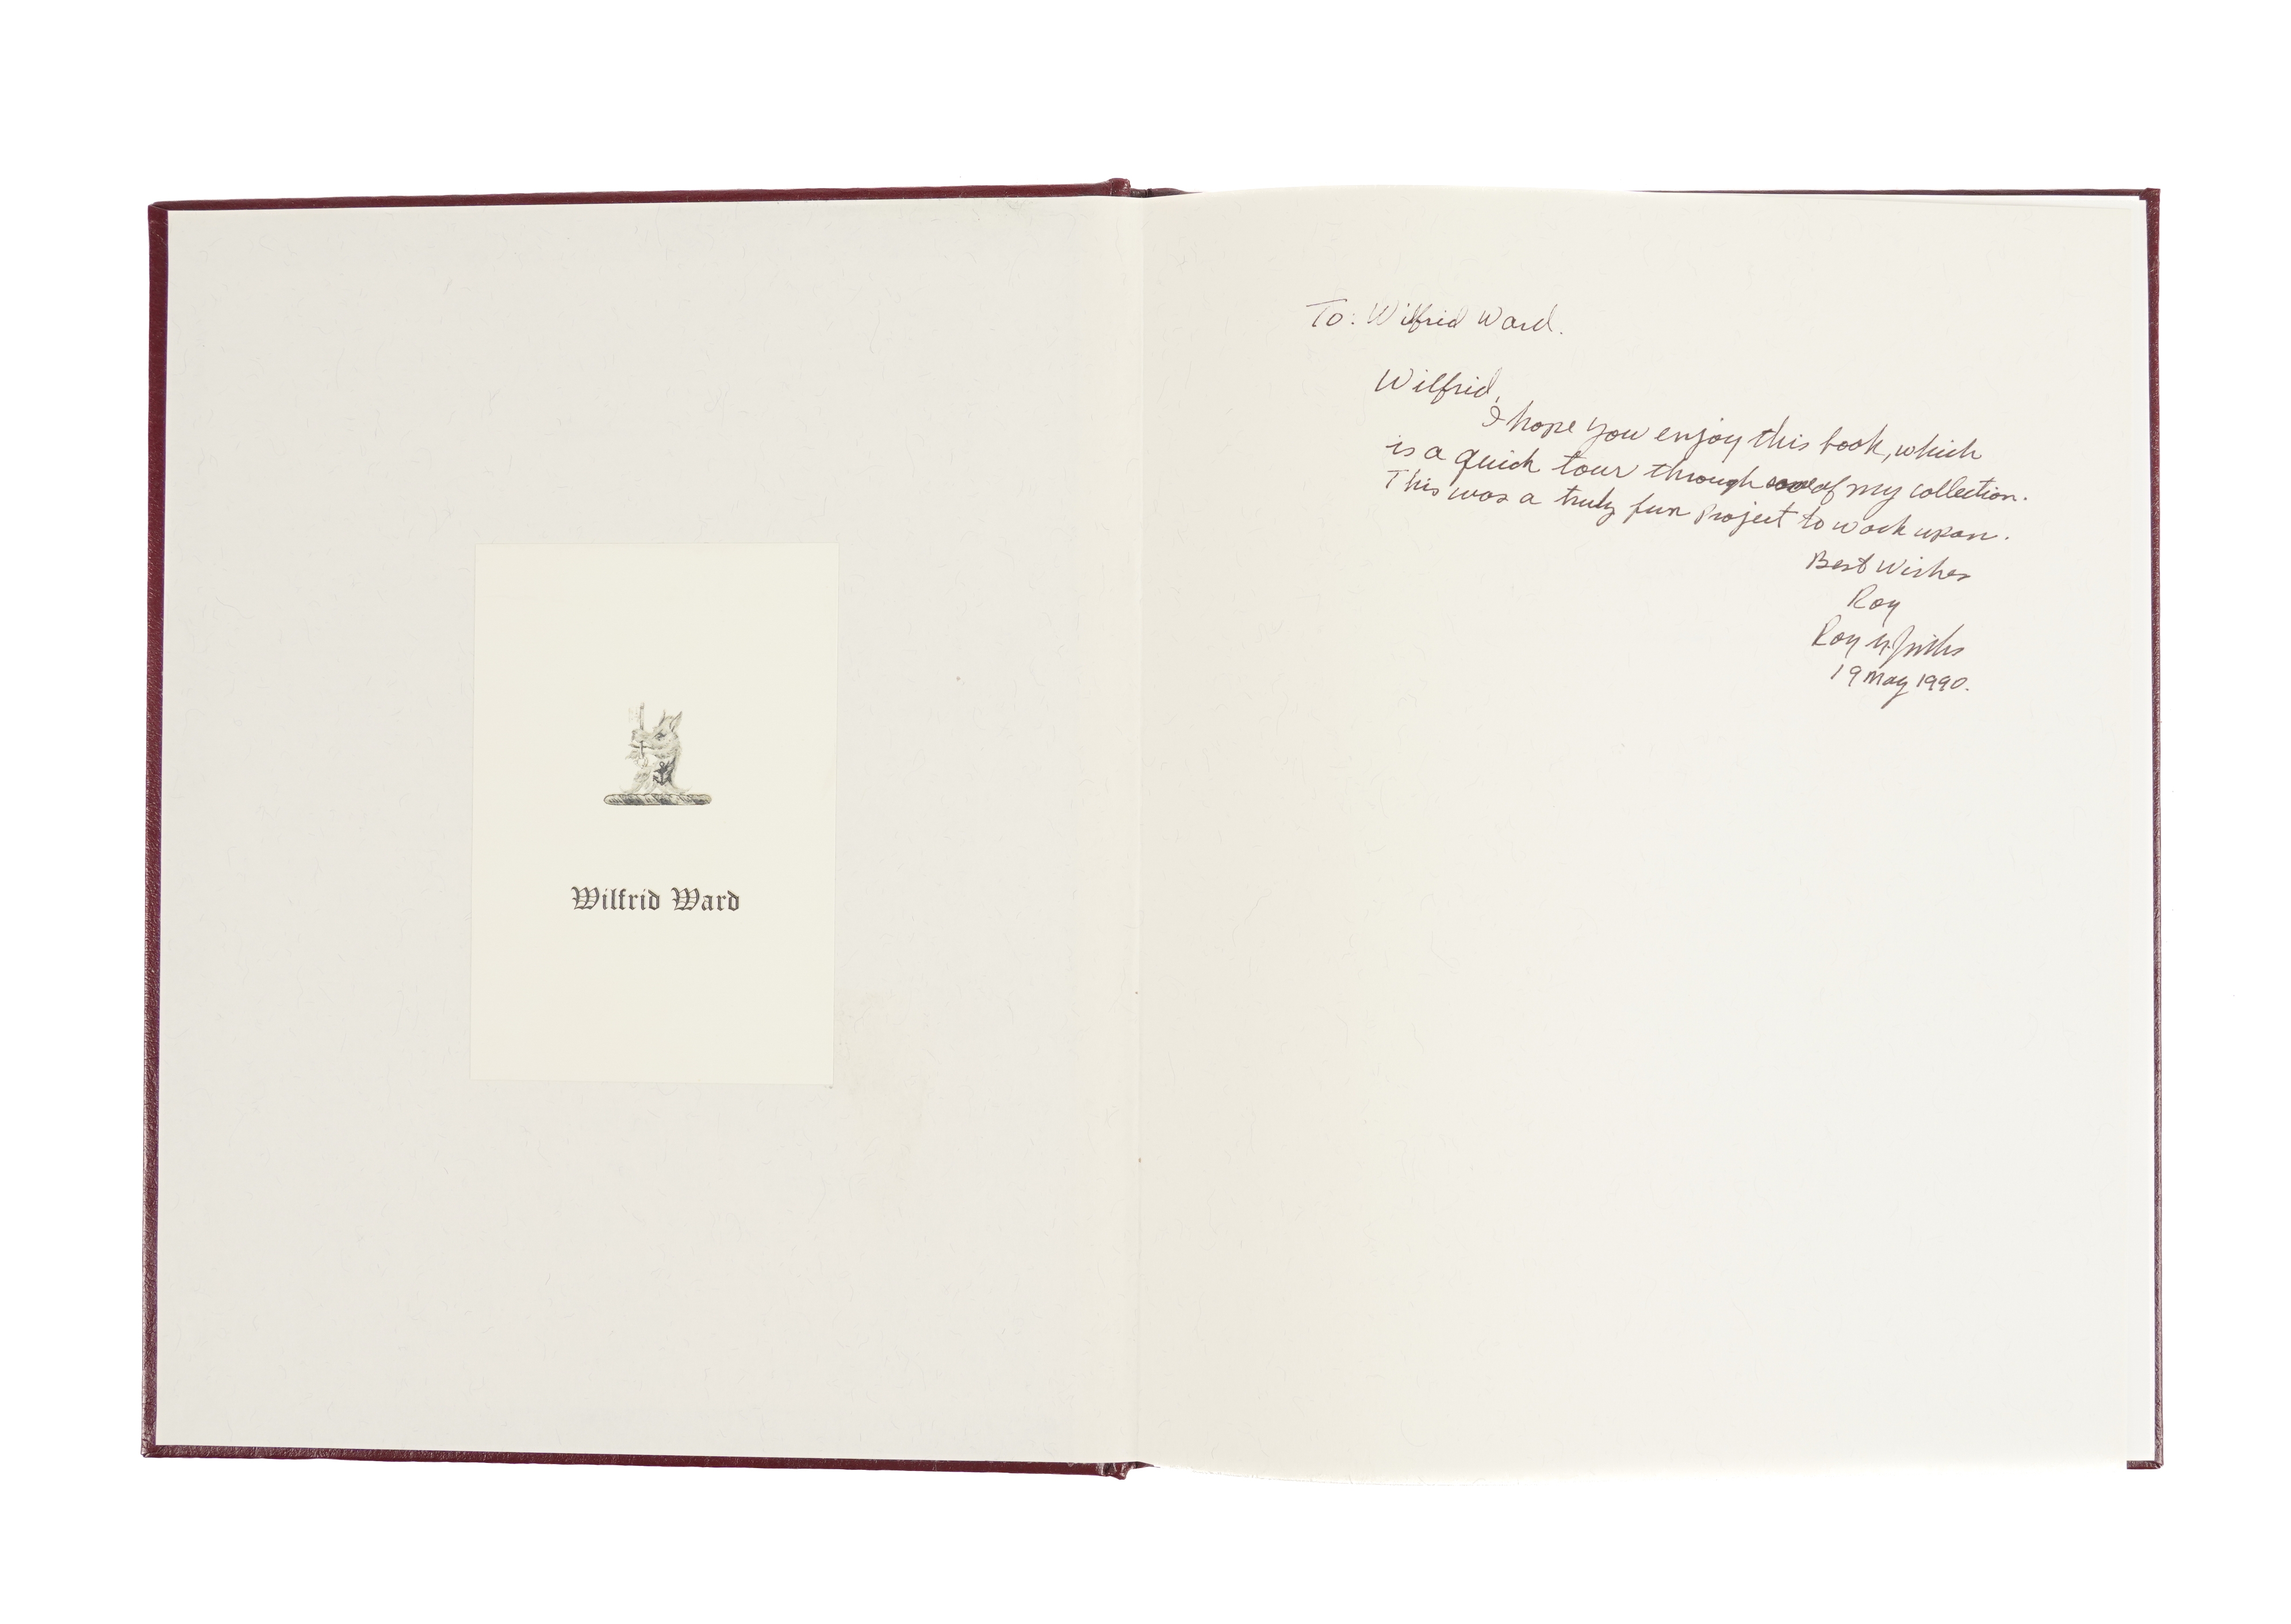 Wilfrid Ward
To: Wilfrid Ward.
Wilfrid,
I hope you enjoy this book, which
is a quick tour through some of my collection.
This was a truly fun project to work upon.
Best Wishes
Roy
Roy
19 May 1990.